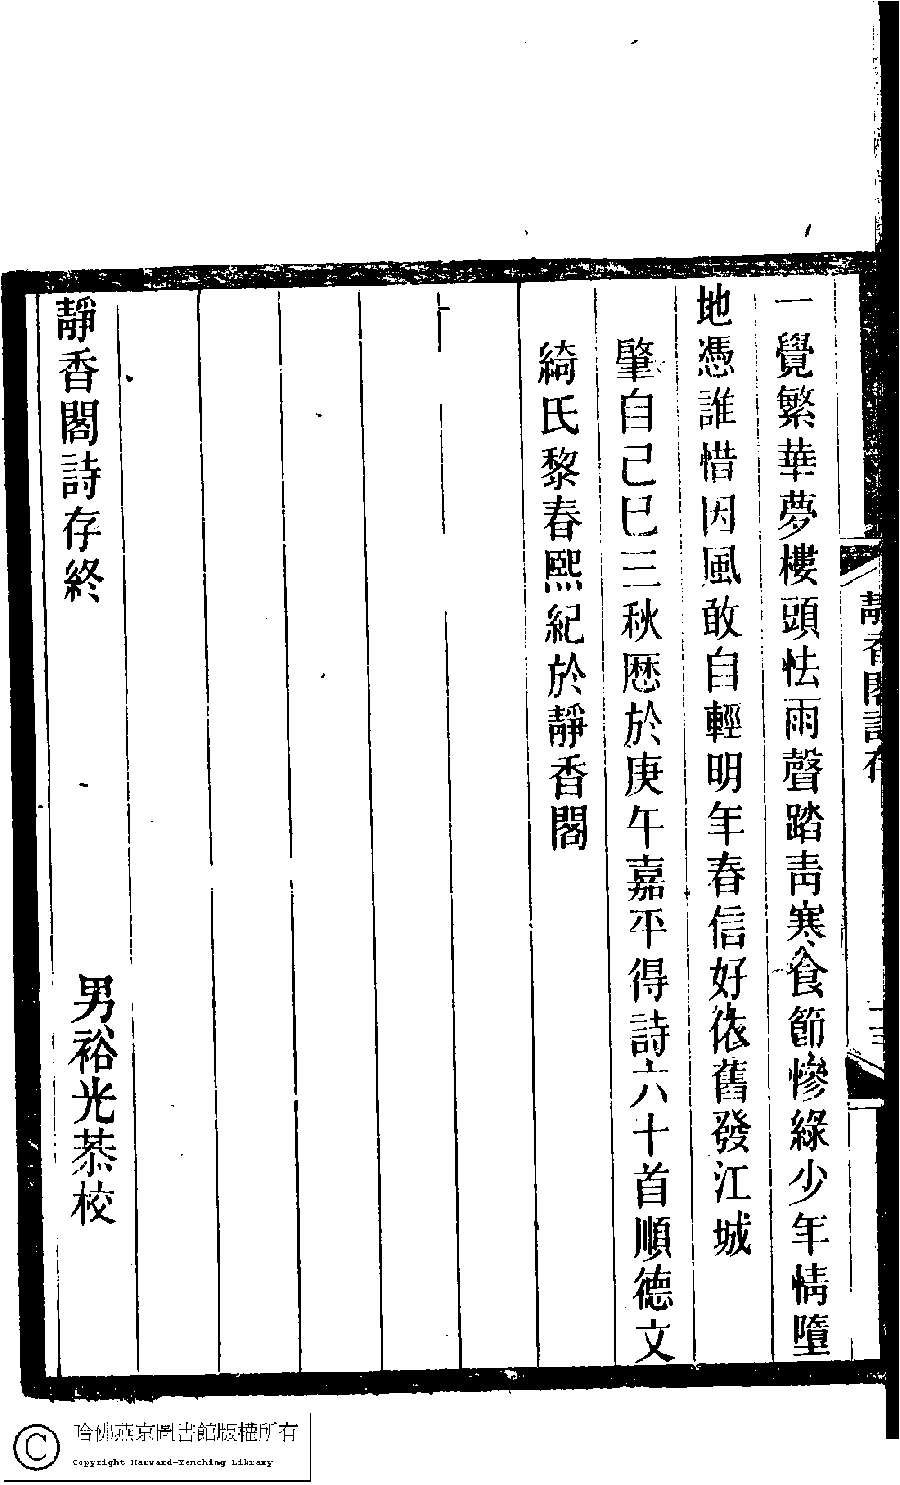 一覺繁華夢樓頭怯雨聲踏靑寒食節慘綠少年情墮
地憑誰惜因風敢自輕明年春信好依舊發江城
肇自己巳三秋歷於庚午嘉平得詩六十首順德文
綺氏黎春熙紀於靜香閣
靜香閣詩存終
男裕光恭校
靜香閣詩存
十三
哈佛燕京圖書館版權所有
Copyright Harvard-Yenching Library